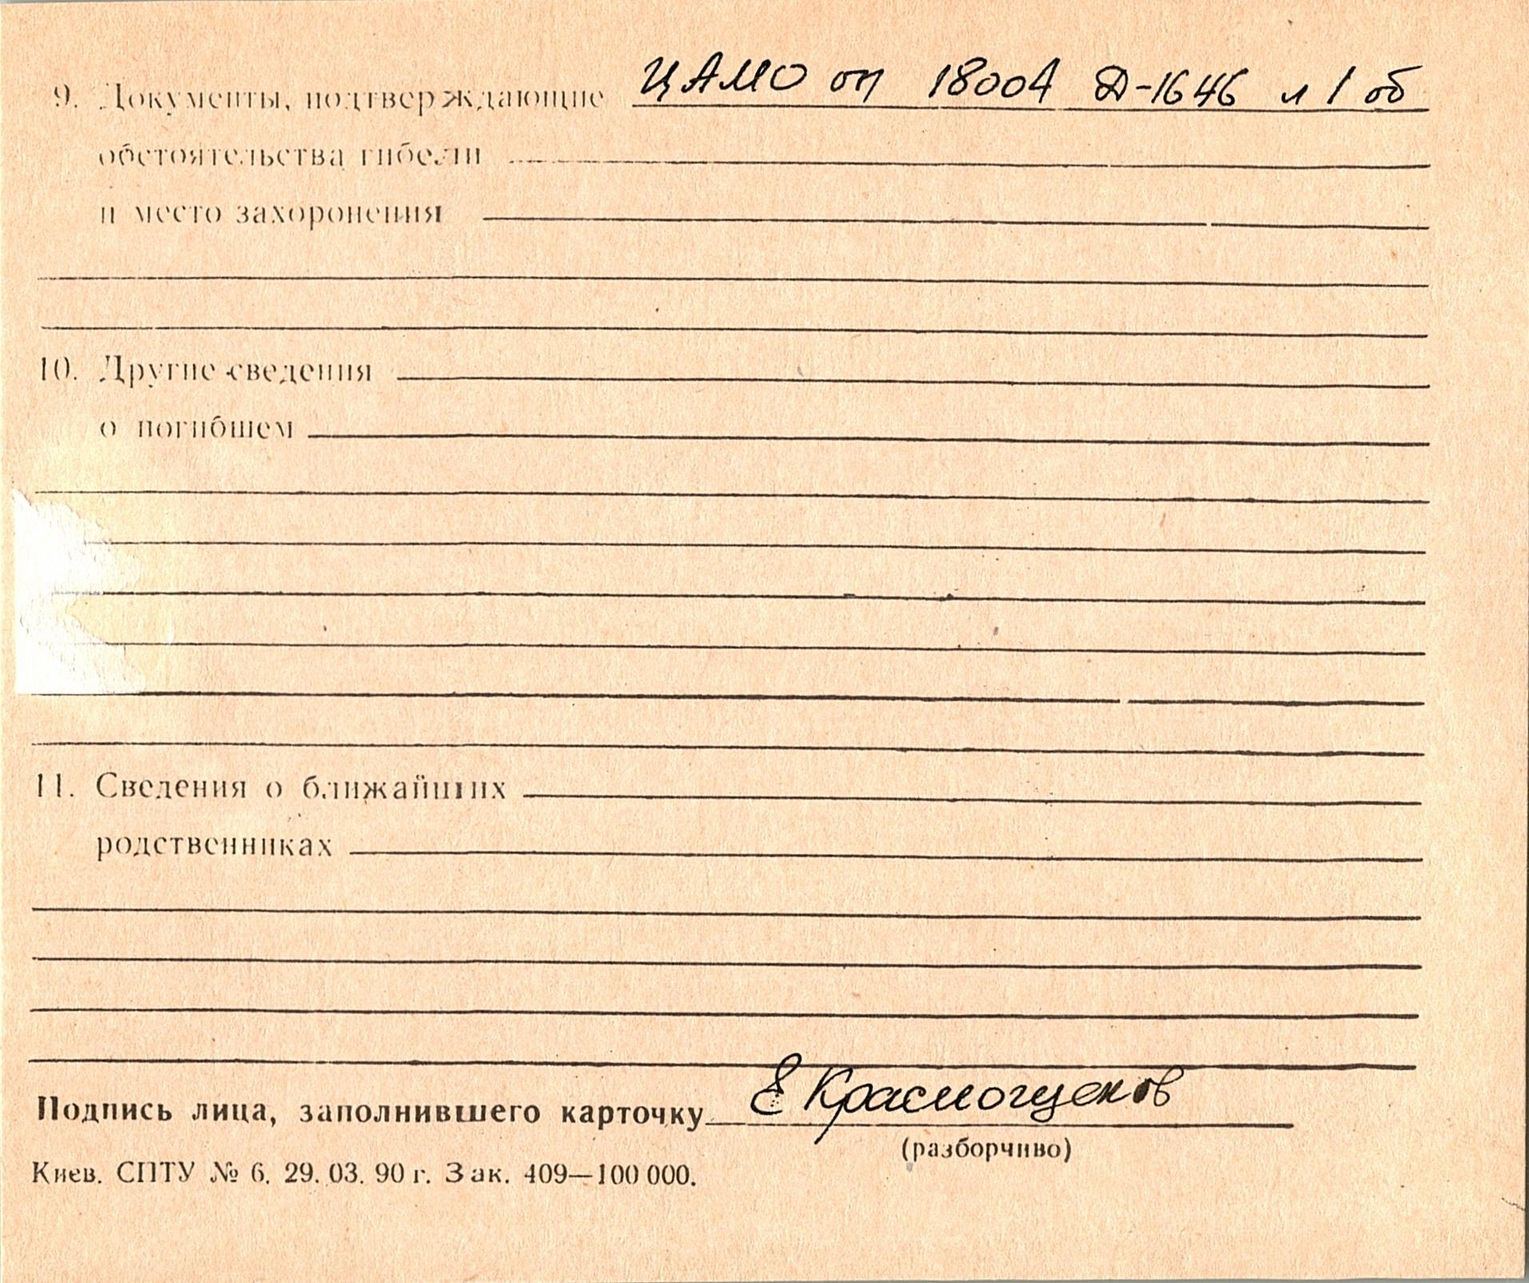 9. Документы, подтверждающие ЦАМО оп 18004 Д-1646 л 1 об
обстоятельства гибели
и место захоронения
10. Другие сведения
о погибшем
11. Сведения о ближайших
родственниках
Подпись лица, заполнившего карточку Е Краснощеков
(разборчиво)
Киев. СПТУ № 6. 29. 03. 90 г. Зак. 409—100 000.